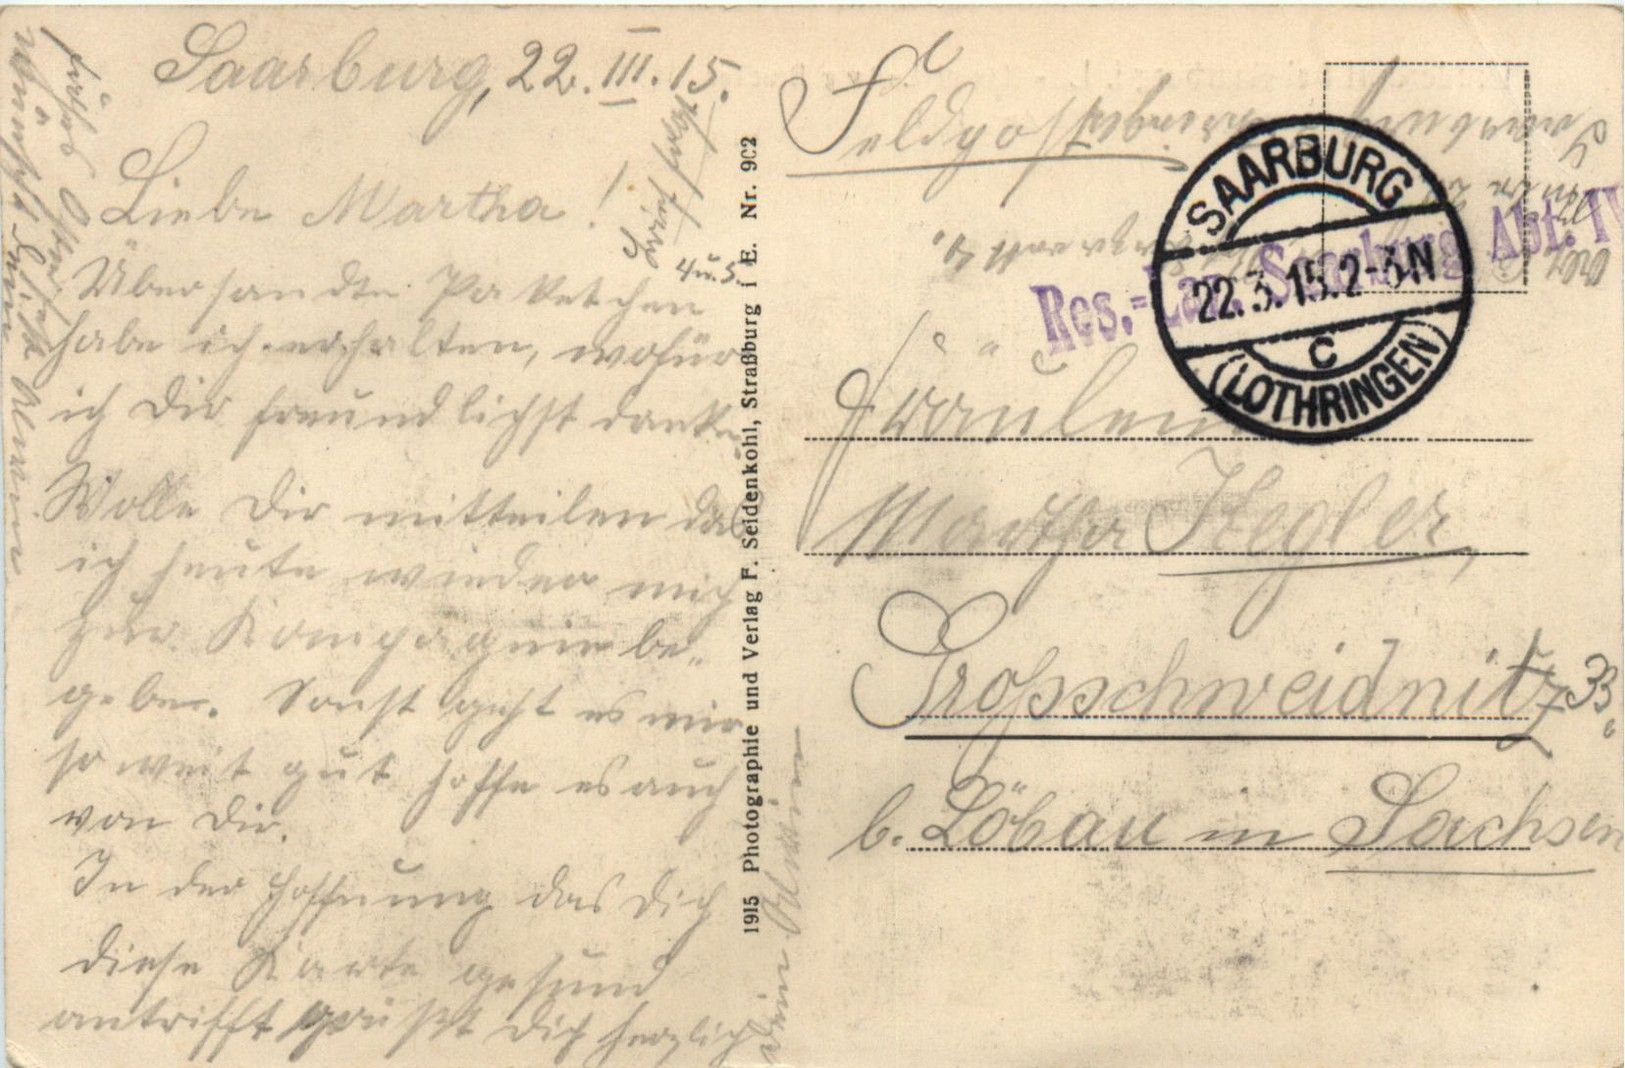 Saarburg, 22. III. 15.
Liebe Martha!
Übersandte Paketchen
habe ich erhalten, wofür
ich Dir freundlichst danke
Wolle Dir mitteilen das
ich heute wieder mich
zur Kompagnie be-
geben. Sonst geht es mir
so weit gut hoffe es auch
von Dir.
In der Hoffnung das Dich
diese Karte gesund
antrifft grüßt Dich herzlich
Dein Alwin
Brief folgt
4 u. 5.
wünscht Dein Alwin
1915 Photographie und Verlag F. Seidenkohl, Straßburg i E. Nr. 902
Feldpost
SAARBURG
22.3.15.2-3N
C
(LOTHRINGEN)
Res.-Laz. Saarburg Abt. IV
Fräulein
Martha Hegler,
Grossschweidnitz 33.
b. Löbau in Sachsen